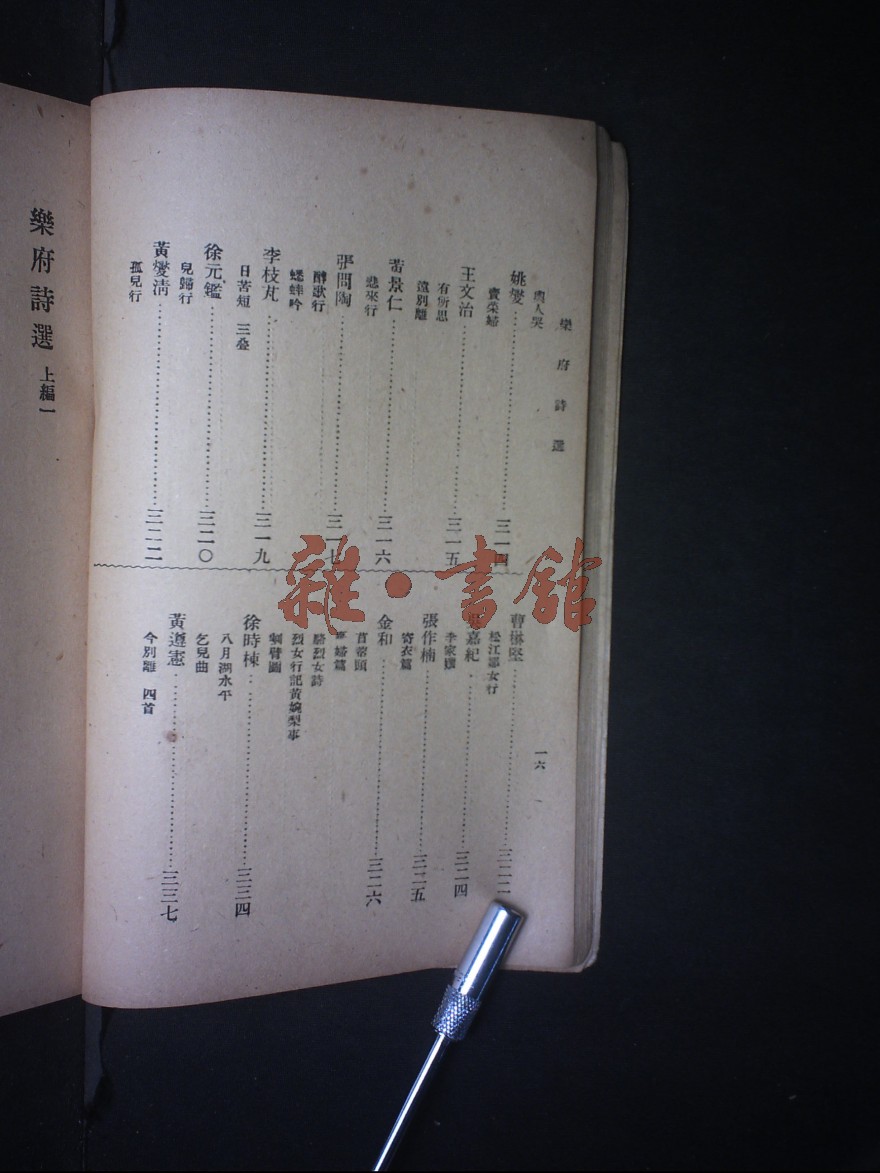 樂府詩選
虞人哭
姚燮……三一四
賣菜婦
王文治……三一五
有所思
遠別離
黃景仁……三一六
悲來行
張問陶……三一七
醉歌行
蟋蟀吟
李枝芃……三一九
日苦短 三叠
徐元鑑……三二〇
兒歸行
黃燮清……三二二
孤兒行
一六
曹楙堅……三二三
松江鄒女行
吳嘉紀……三二四
李家孃
張作楠……三二五
寄衣篇
金和……三二六
苜蓿頭
烈女行記黃婉梨事
徐時棟……三三四
八月湖水平
乞兒曲
黃遵憲……三三七
今別離 四首
樂府詩選 上編一
雜·書館